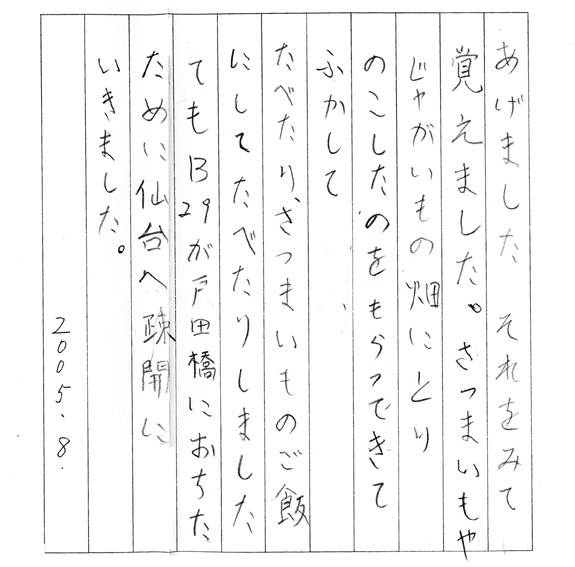 あげました それをみて
覚えました。さつまいもや
じゃがいもの畑にとり
のこしたのをもらってきて
ふかして、
たべたり、さつまいものご飯
にしてたべたりしました
てもB29が戸田橋におちた
ために仙台へ疎開に
いきました。
2005.8.